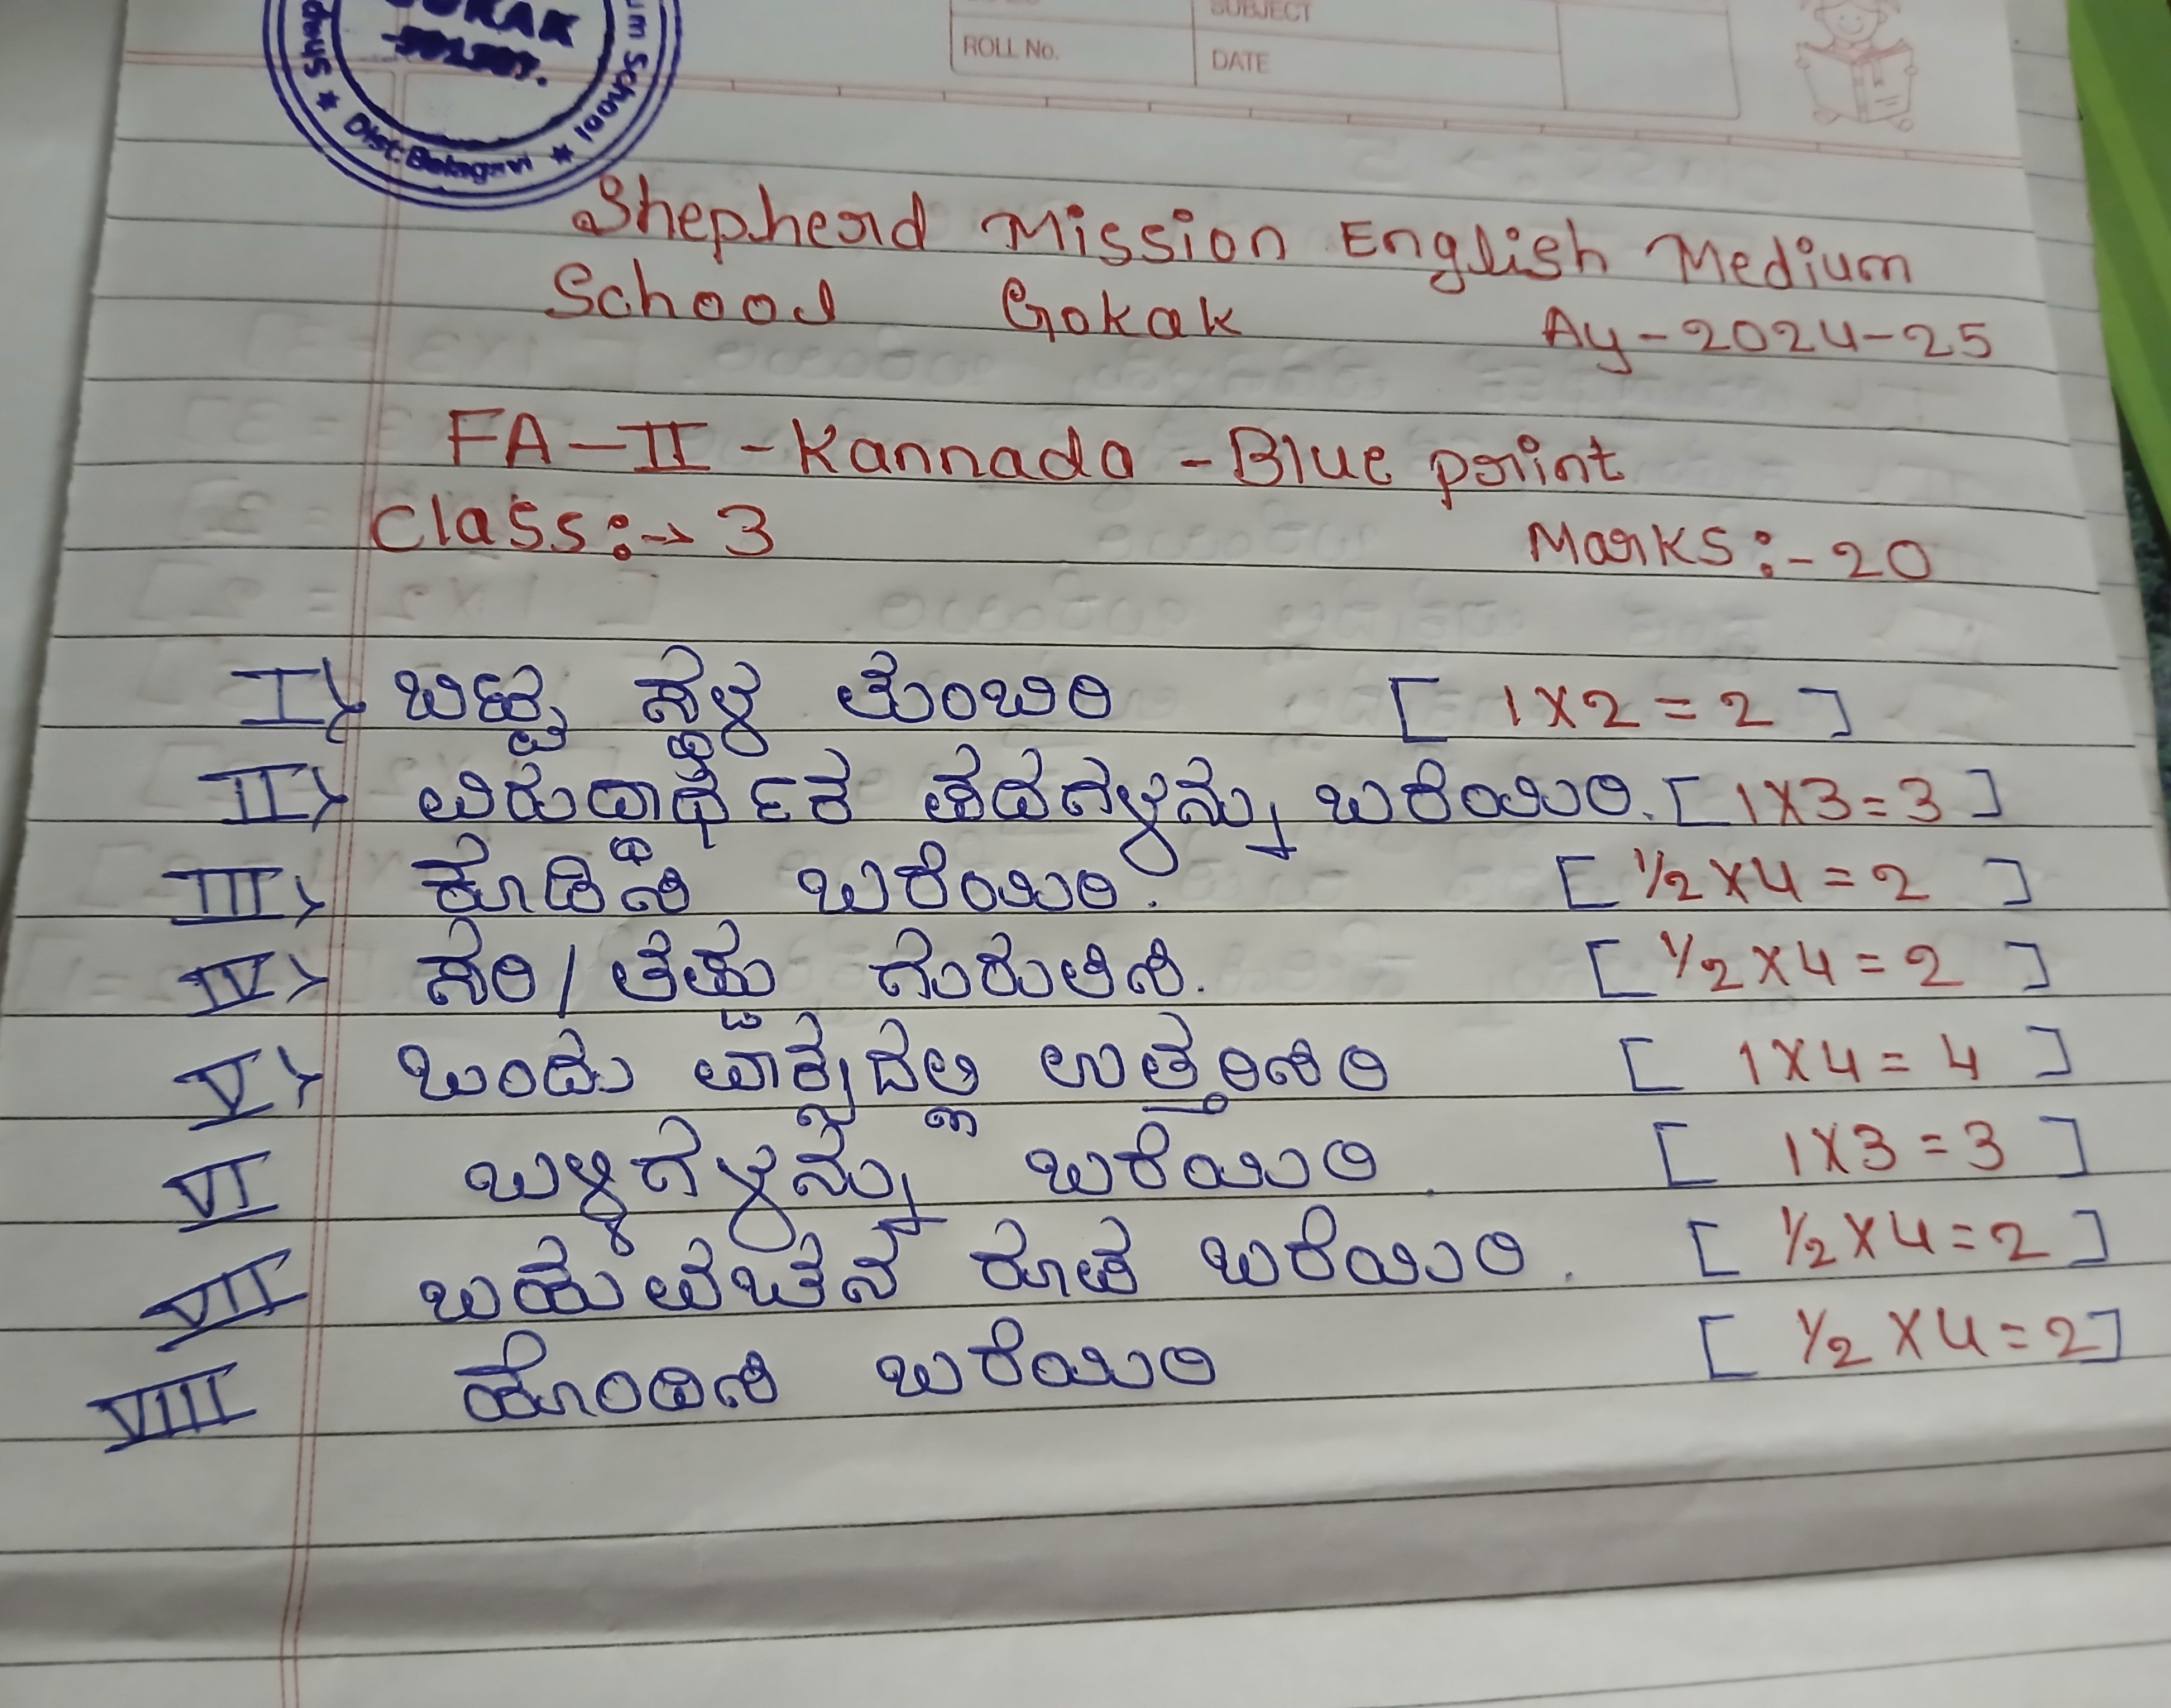 SUBJECT
ROLL No.
DATE
Dist: Belagavi
School
Shepherd Mission English Medium
School Gokak Ay-2024-25
FA-II-Kannada-Blue print
Class:→3 Marks:-20
I> ಬಿಟ್ಟ ಸ್ಥಳ ತುಂಬಿರಿ [ 1X2=2 ]
II> ವಿರುದ್ಧಾರ್ಥಕ ಪದಗಳನ್ನು ಬರೆಯಿರಿ. [ 1X3=3 ]
III> ಕೂಡಿಸಿ ಬರೆಯಿರಿ. [ 1/2 X4=2 ]
IV> ಸರಿ/ತಪ್ಪು ಗುರುತಿಸಿ. [ 1/2 X4=2 ]
V> ಒಂದು ವಾಕ್ಯದಲ್ಲಿ ಉತ್ತರಿಸಿರಿ [ 1X4=4 ]
VI ಒಳ್ಳಗಳನ್ನು ಬರೆಯಿರಿ. [ 1X3=3 ]
VII ಬಹುವಚನ ರೂಪ ಬರೆಯಿರಿ. [ 1/2 X4=2 ]
VIII ಹೊಂದಿಸಿ ಬರೆಯಿರಿ [ 1/2 X4=2 ]